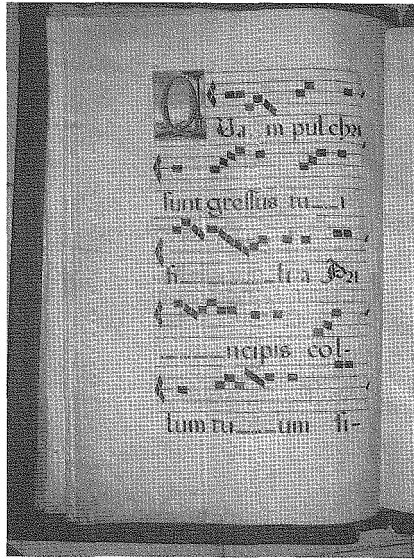 QUam pulchri
sunt gressus tu__i
fi______li a Pri
____ncipis col-
lum tu___um si-